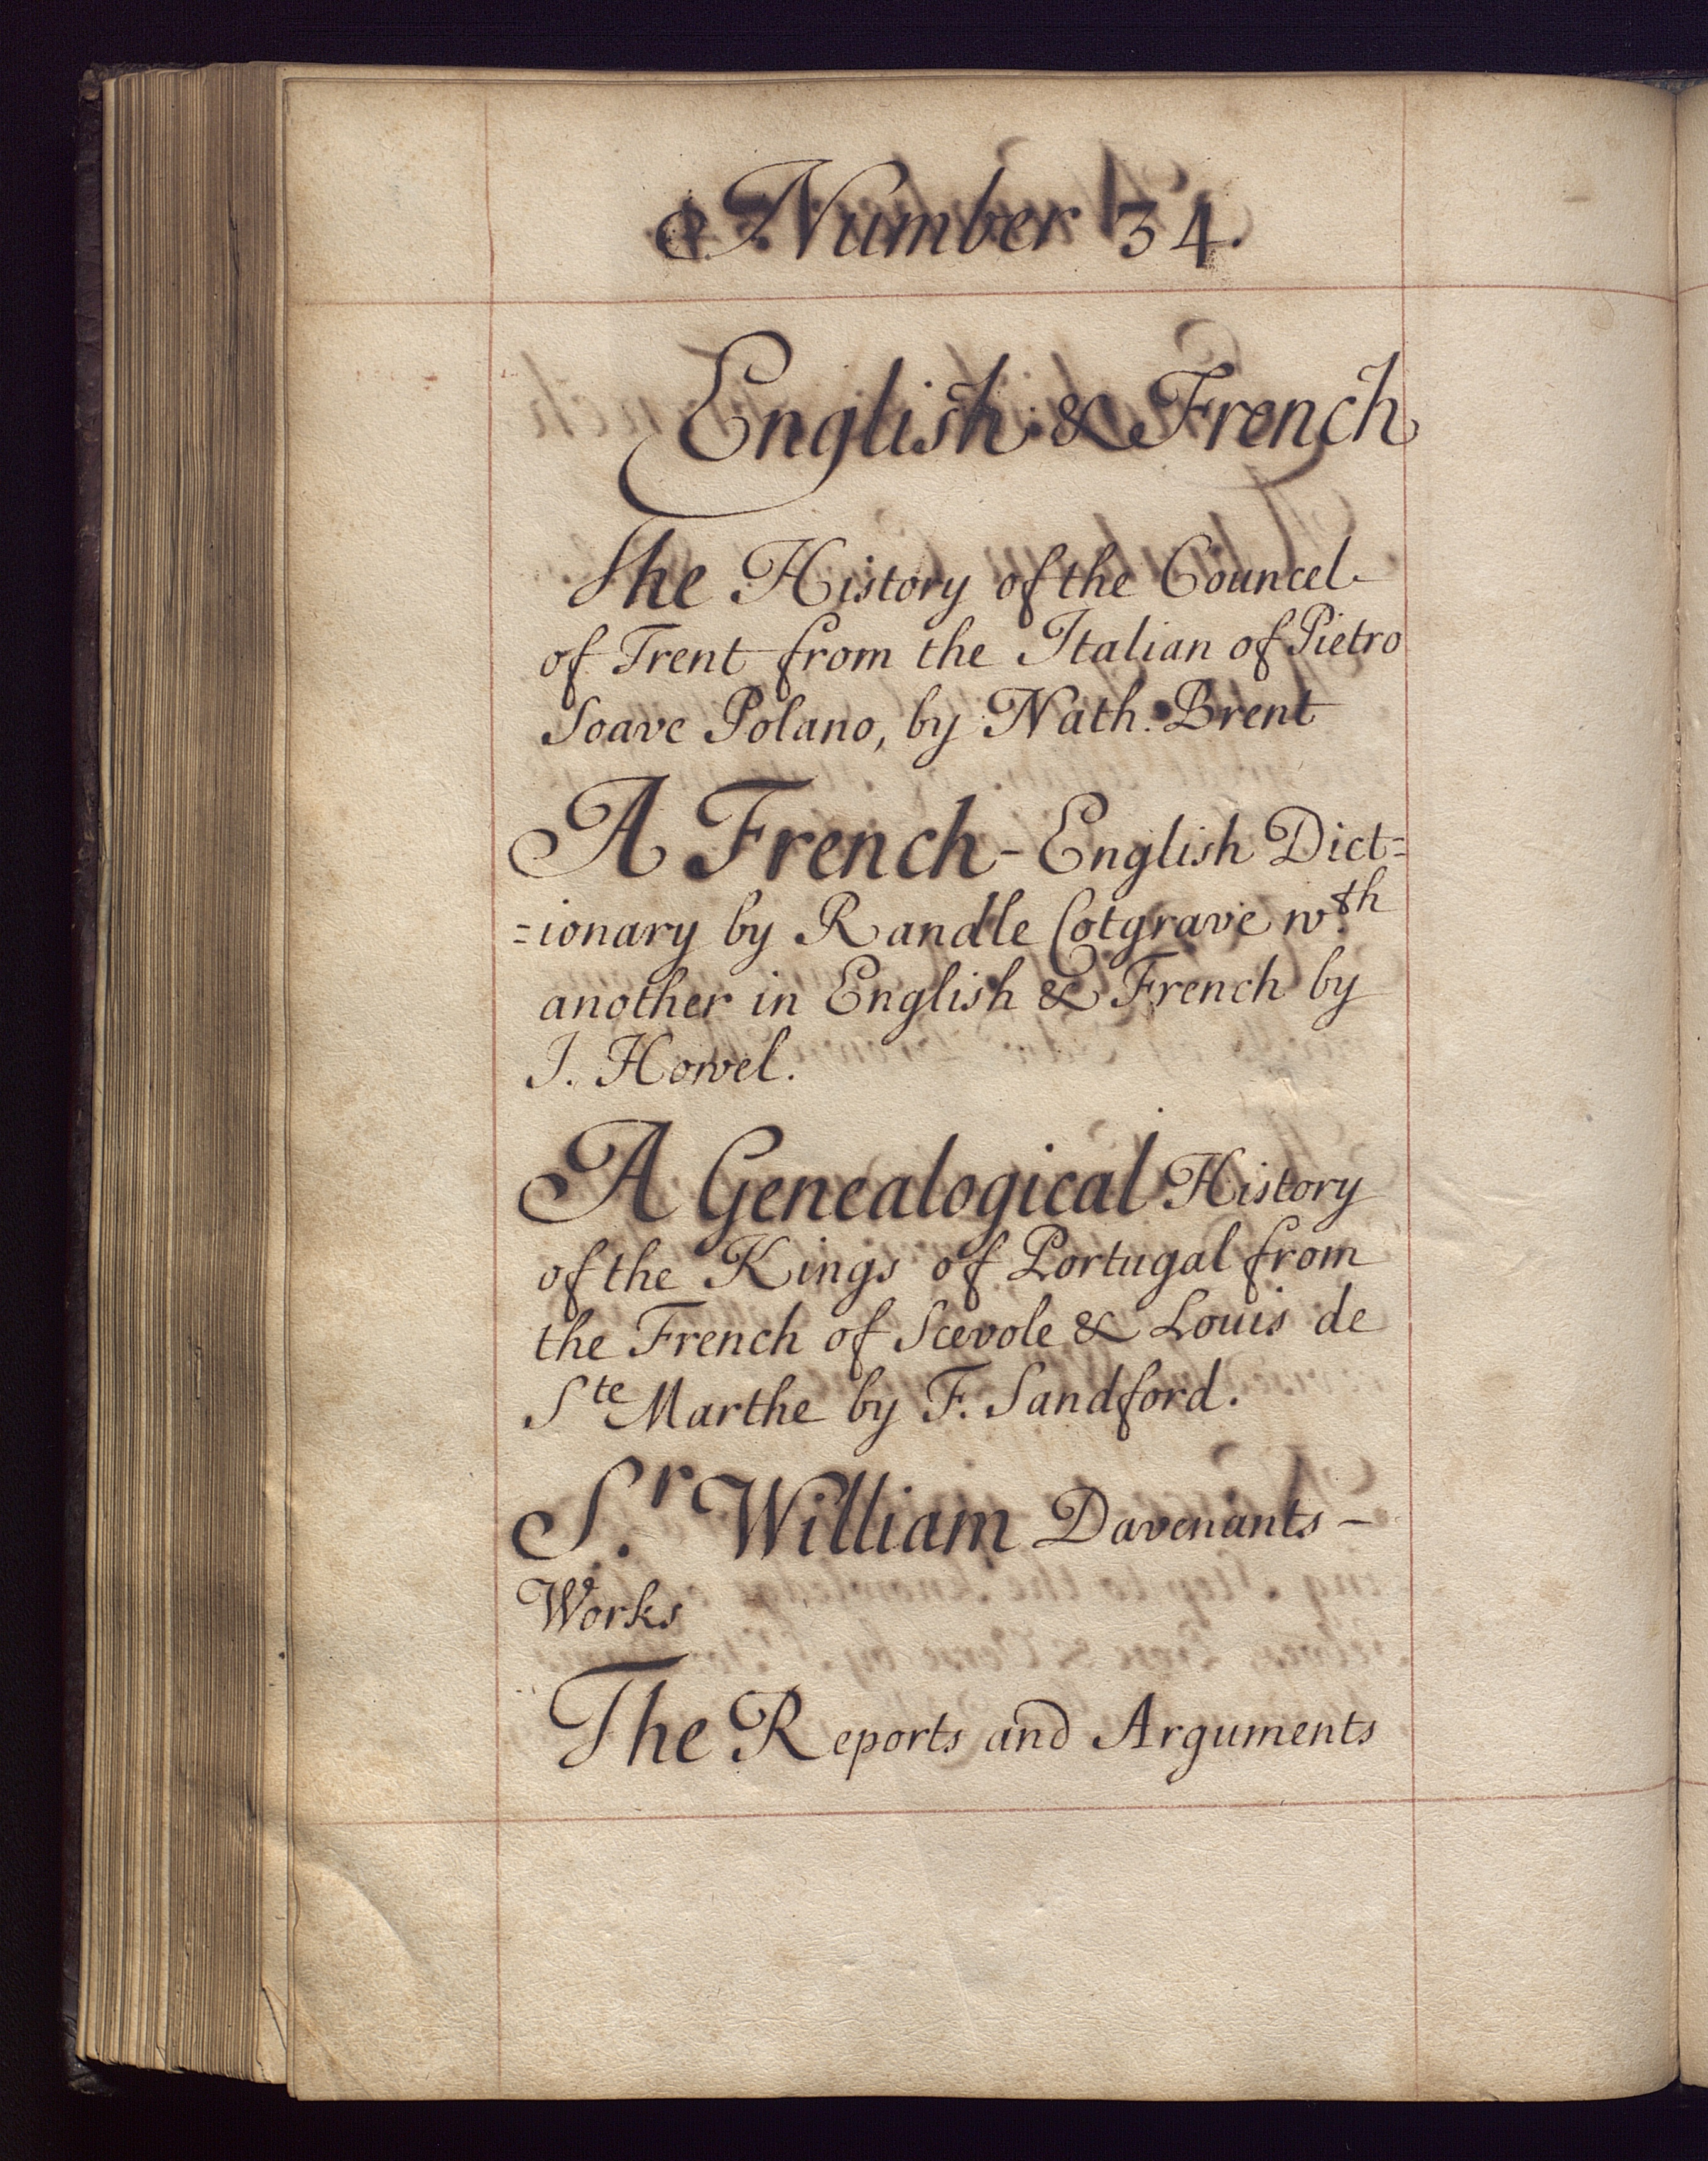 Number 34.
English & French
The History of the Councel
of Trent from the Italian of Pietro
Soave Polano, by Nath. Brent
A French - English Dict=
=ionary by Randle Cotgrave wth
another in English & French by
J. Howel.
A Genealogical History
of the Kings of Portugal from
the French of Scevole & Louis de
Ste Marthe by F. Sandford.
Sr. William Davenants -
Works
The Reports and Arguments